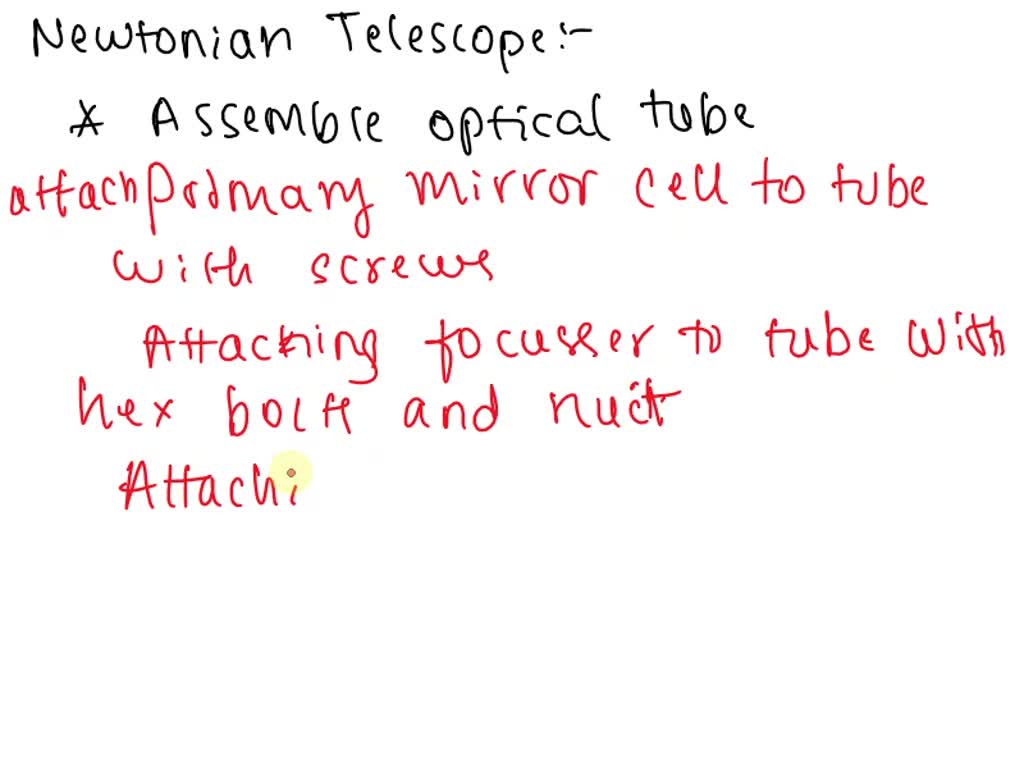 Newtonian Telescope:-
* Assemble optical tube
attach Primary mirror cell to tube
with screws
Attaching focusser to tube with
hex bolt and nut
Attachi